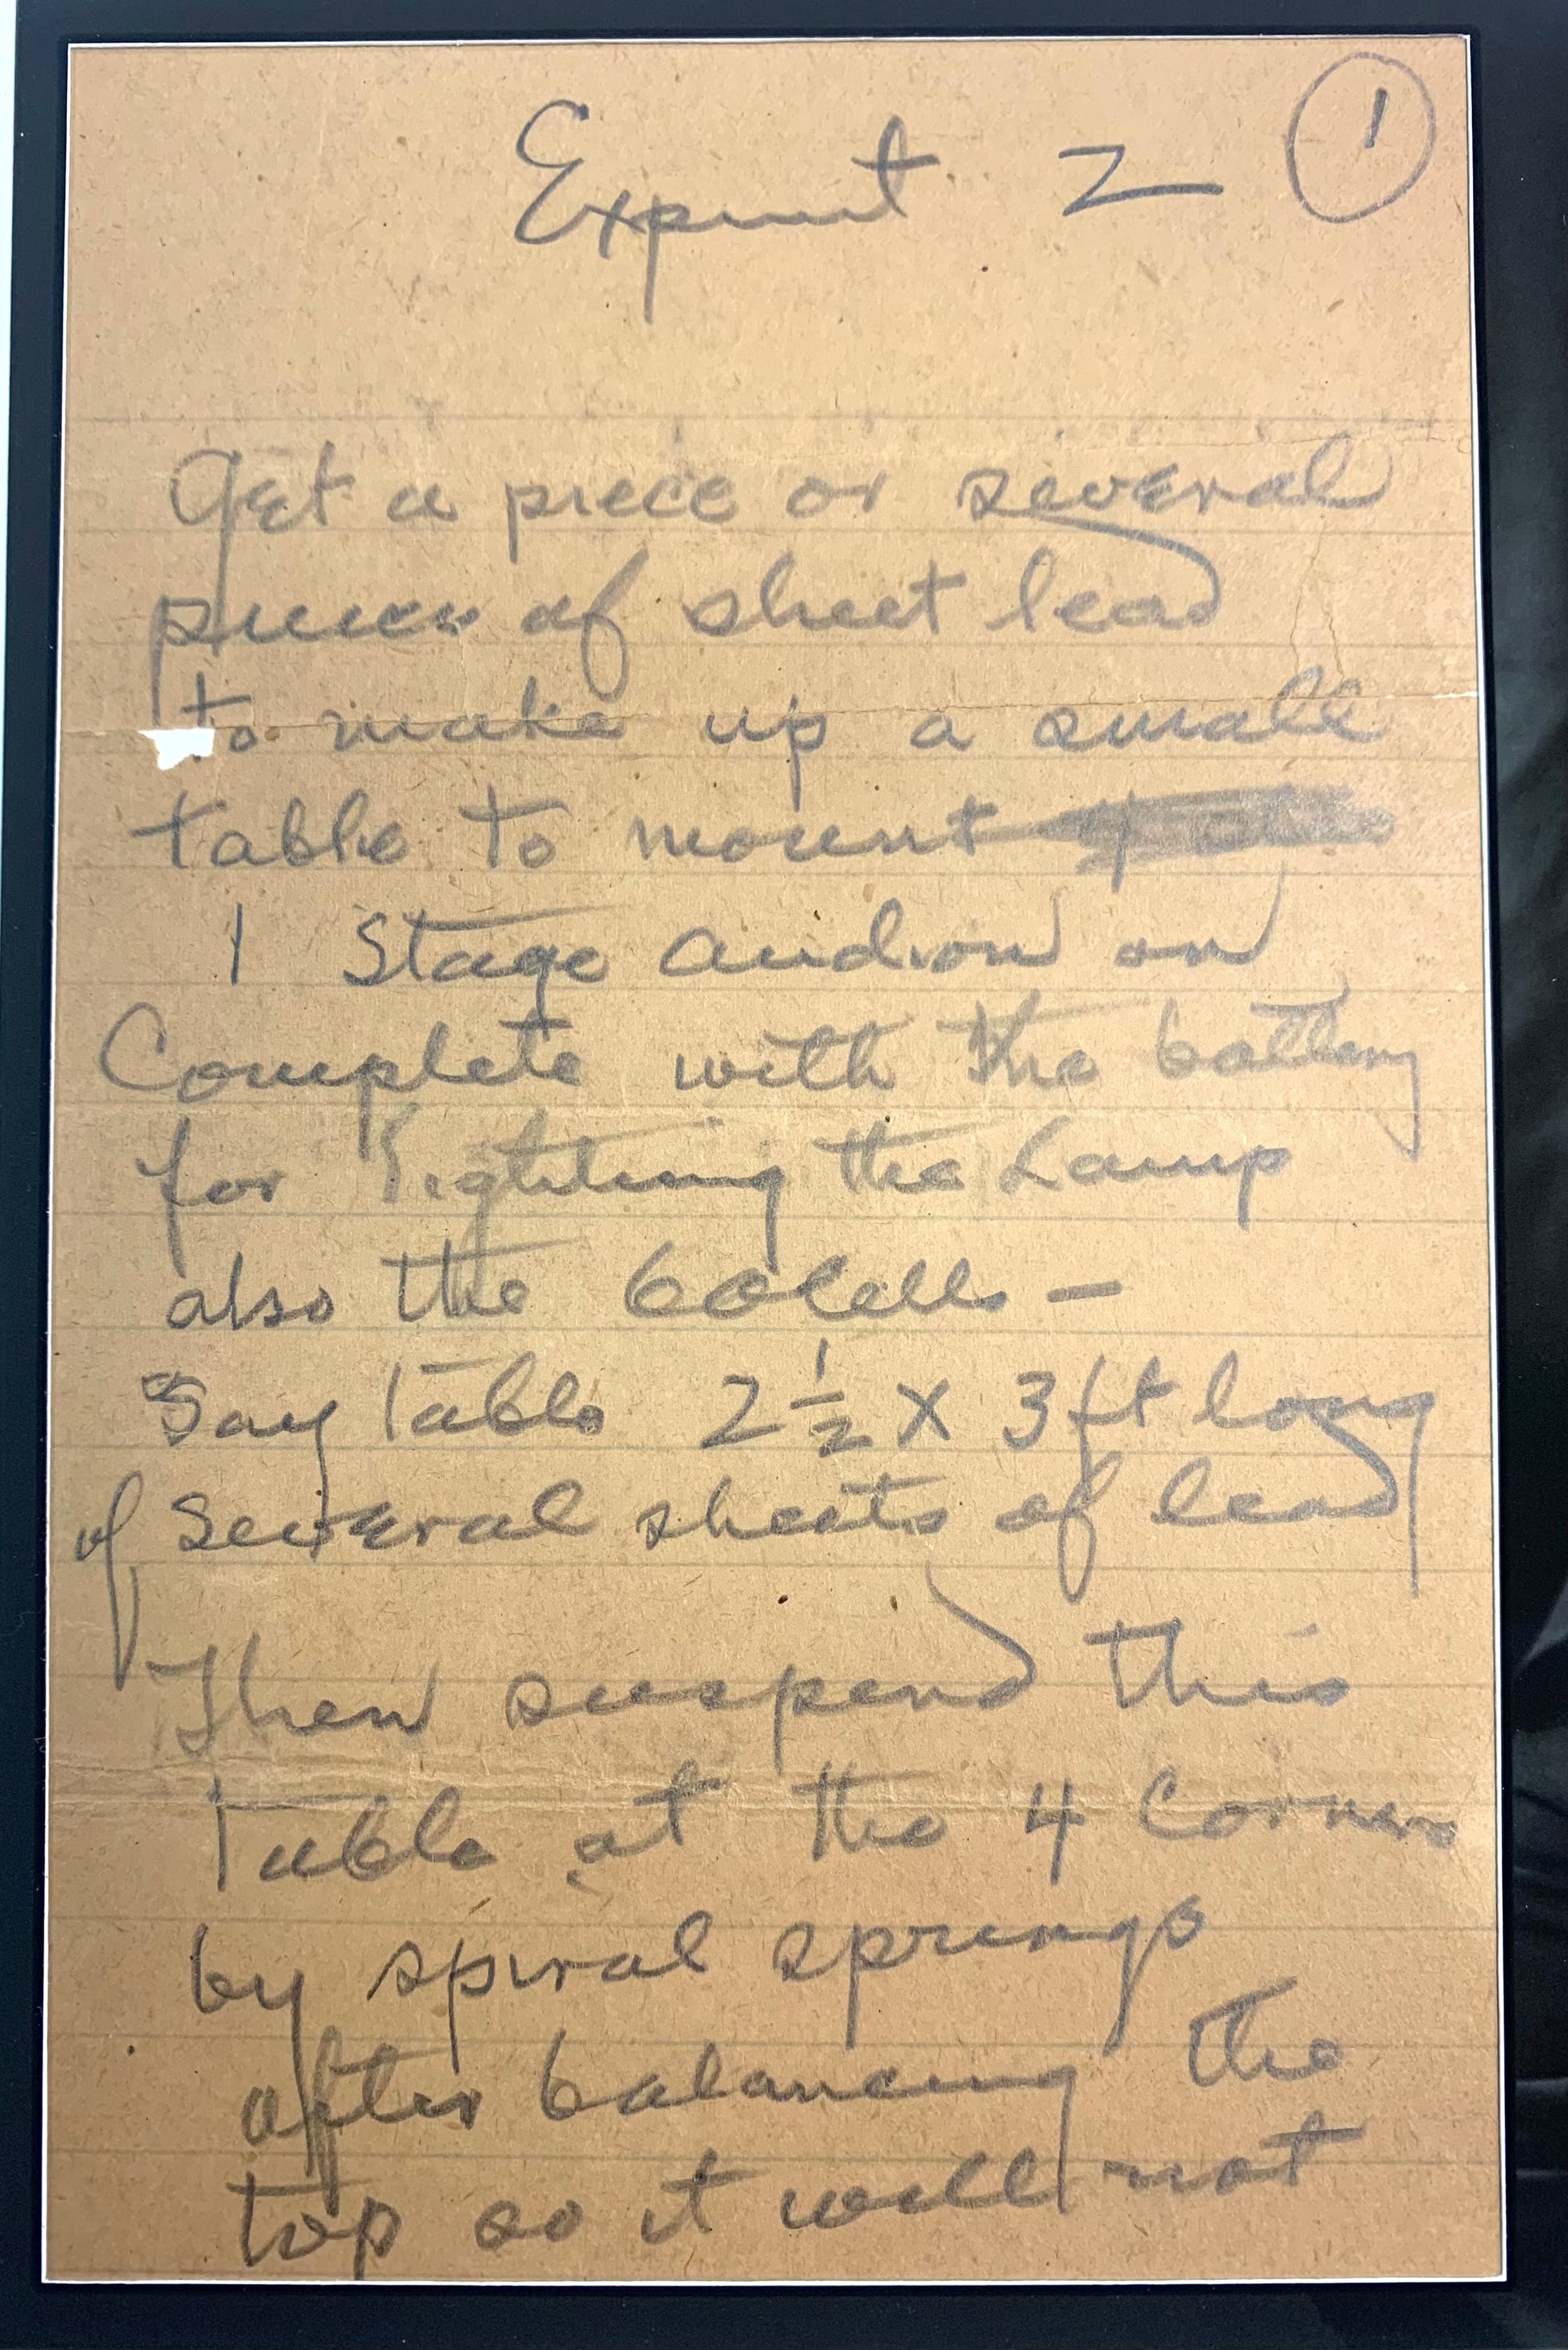 Expmt 2 1
Get a piece or several
pieces of sheet lead
to make up a small
table to mount
1 Stage audion on
Complete with the battery
for lighting the Lamp
also the 60 Cells —
Say Table 2 1/2 x 3 ft long
of several sheets of lead
Then suspend this
Table at the 4 Corners
by spiral springs
after balancing the
top so it will not